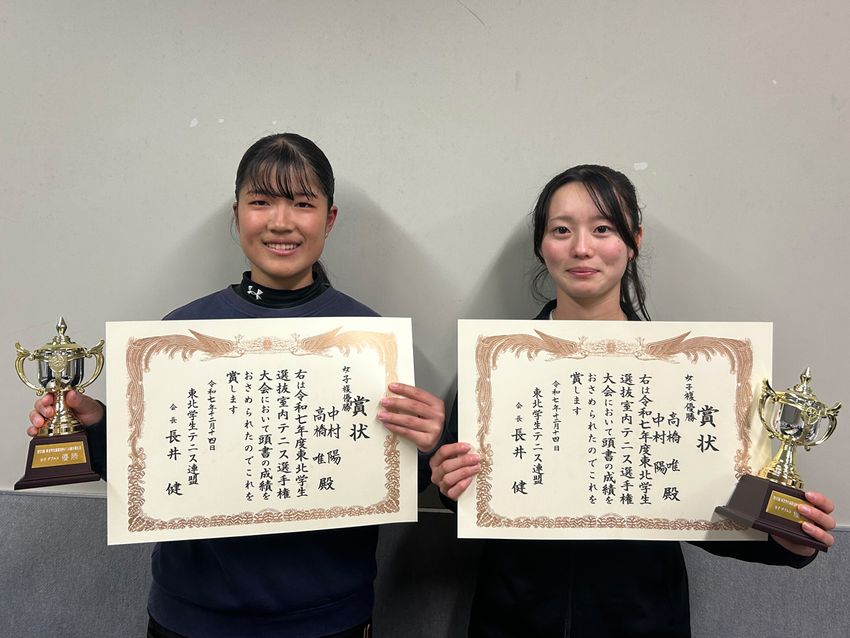 賞状
女子複優勝
中村 陽
高橋 唯 殿
右は令和七年度東北学生
選抜室内テニス選手権
大会において頭書の成績を
おさめられたのでこれを
賞します
令和七年十二月十四日
東北学生テニス連盟
会長 長井 健
優勝
賞状
女子複優勝
高橋 唯
中村 陽 殿
右は令和七年度東北学生
選抜室内テニス選手権
大会において頭書の成績を
おさめられたのでこれを
賞します
令和七年十二月十四日
東北学生テニス連盟
会長 長井 健